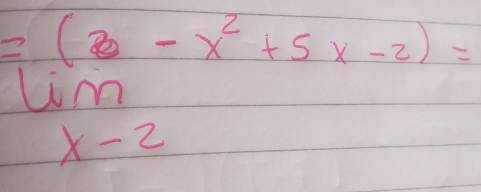 = ( - x² + 5x - 2) =
lim
x - 2